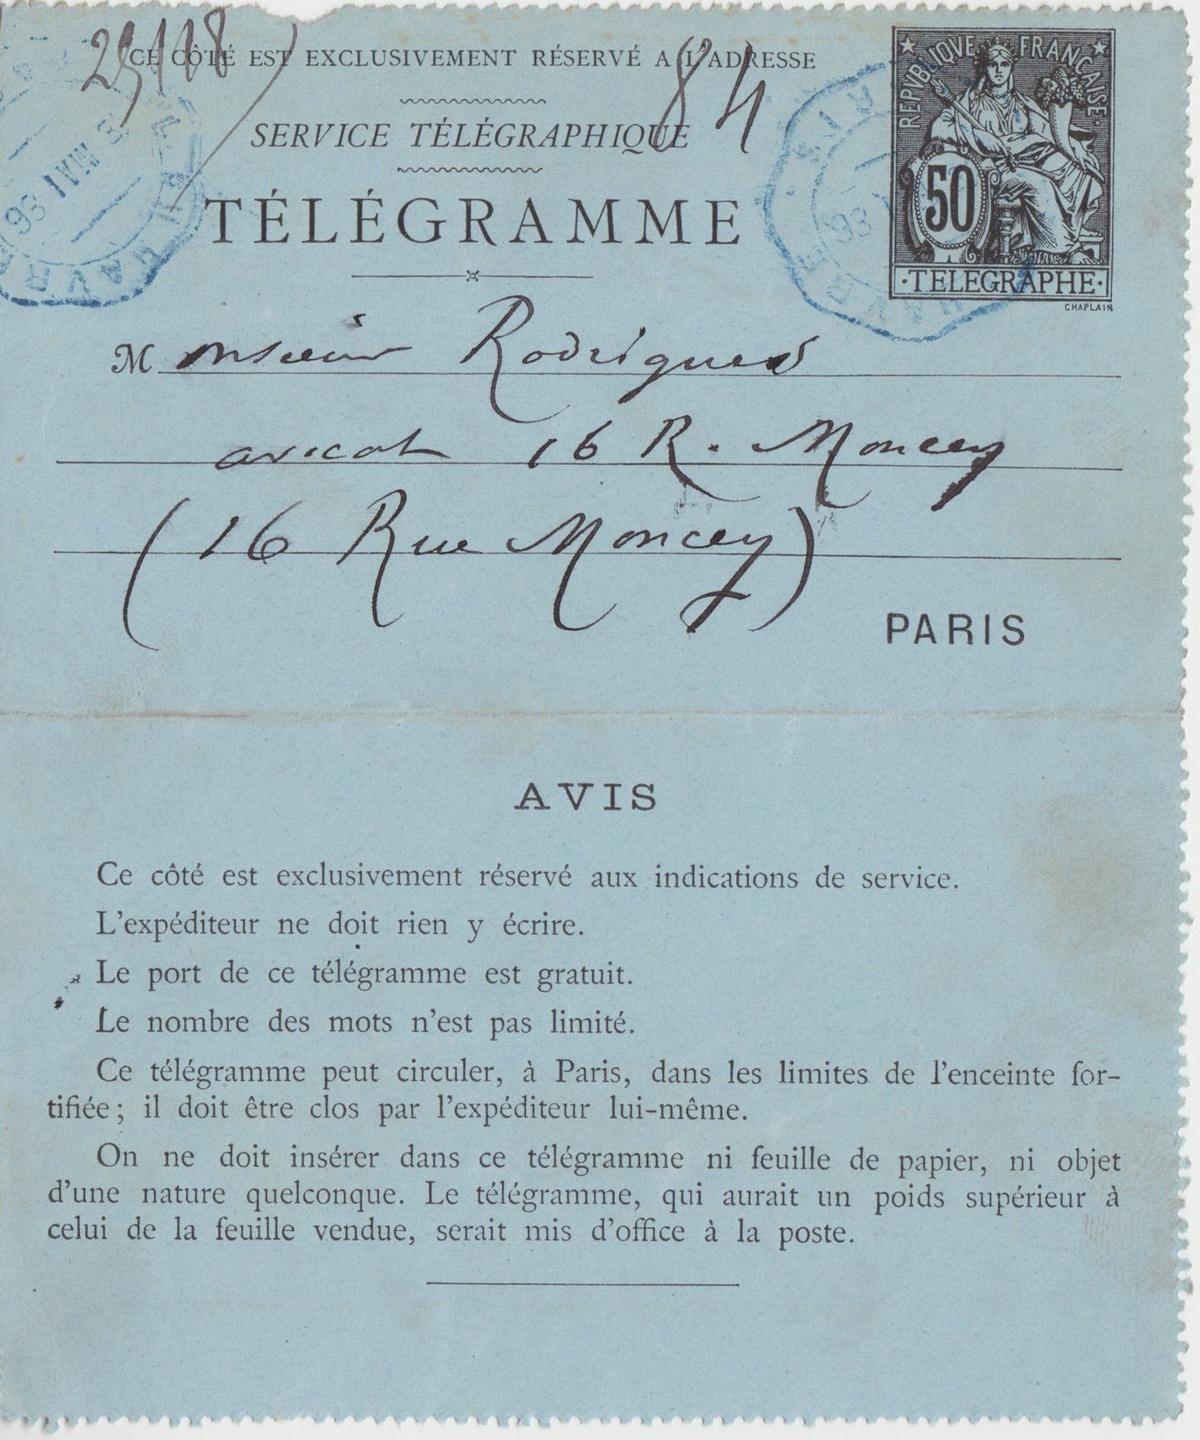 25/118 84
CE CÔTÉ EST EXCLUSIVEMENT RÉSERVÉ A L'ADRESSE
SERVICE TÉLÉGRAPHIQUE
TÉLÉGRAMME
RÉPUBLIQUE FRANÇAISE
50
TELEGRAPHE
CHAPLAIN
MAI 93
HAVRE
93
HAVRE
Monsieur Rodrigues
avocat 16 R. Moncey
(16 Rue Moncey)
PARIS
AVIS
Ce côté est exclusivement réservé aux indications de service.
L'expéditeur ne doit rien y écrire.
Le port de ce télégramme est gratuit.
Le nombre des mots n'est pas limité.
Ce télégramme peut circuler, à Paris, dans les limites de l'enceinte for-
tifiée; il doit être clos par l'expéditeur lui-même.
On ne doit insérer dans ce télégramme ni feuille de papier, ni objet
d'une nature quelconque. Le télégramme, qui aurait un poids supérieur à
celui de la feuille vendue, serait mis d'office à la poste.